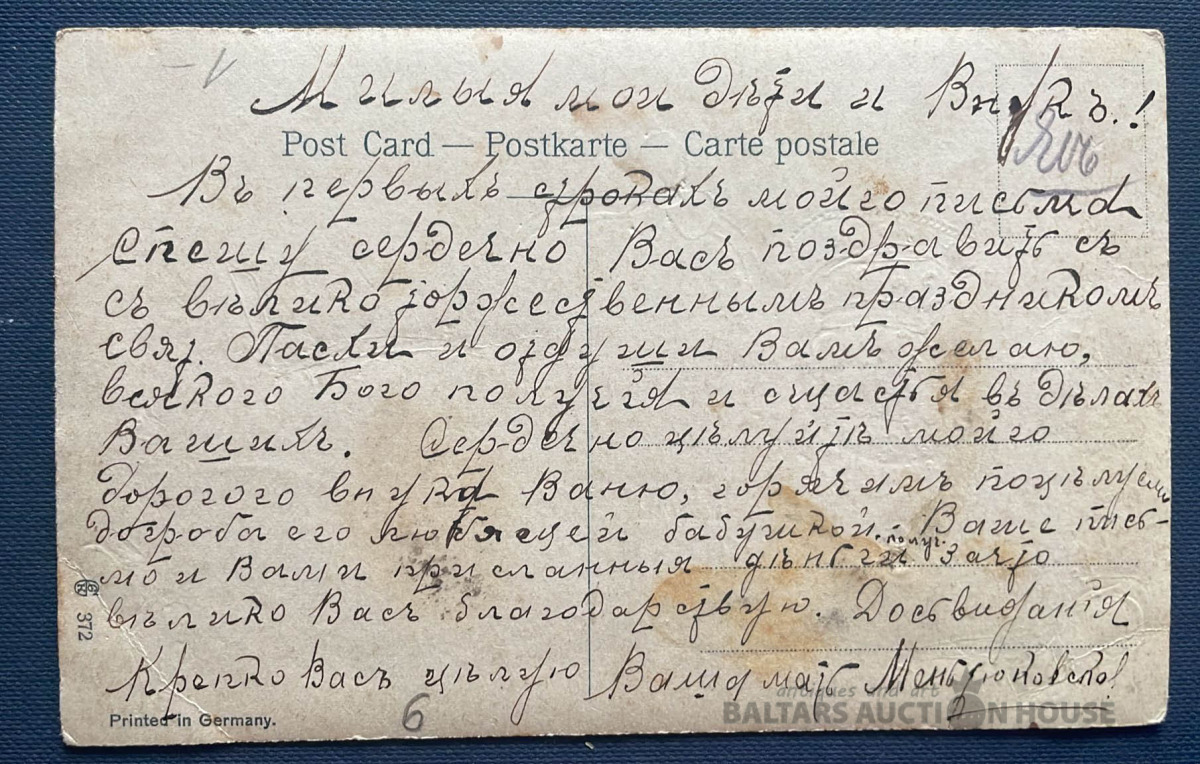 Милыя мои Дѣти и Внукъ.!
Post Card — Postkarte — Carte postale
Въ первыхъ строкахъ мойго писма
Спешу сердечно Васъ поздравить съ
съ вѣлико торжественнымъ праздникомъ
свят. Пасхи и отдуши Вамъ желаю,
всякого Бого получія и сщастья въ Дѣлахъ
Вашихъ. Сердечно цѣлуйтѣ мойго
дорогого внука Ваню, горячимъ поцѣлуем
догроба его любящей бабушкой. Ваше пись-
мо и Вами присланныя получ. дѣньги зачто
вѣлико Васъ благодарствую. Досьвиданія
Крепко Васъ цѣлую Ваша мать
372
Printed in Germany.
6
antiques and art
BALTARS AUCTION HOUSE